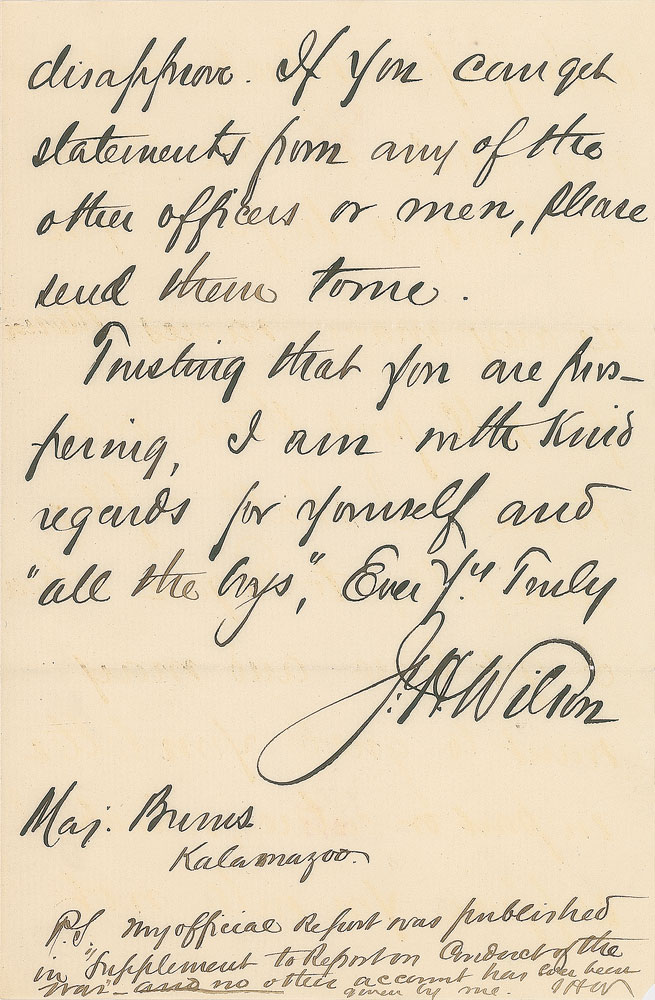 disapprove. If you can get
statements from any of the
other officers or men, please
send them to me.
Trusting that you are pros-
pering, I am with Kind
regards for yourself and
"all the boys", Ever Yrs. Truly
J.H. Wilson
Maj. Burns
Kalamazoo.
P.S. my official Report was published
in "Supplement to Report on Conduct of the
War" - and no other account has ever been
given by me. JHW